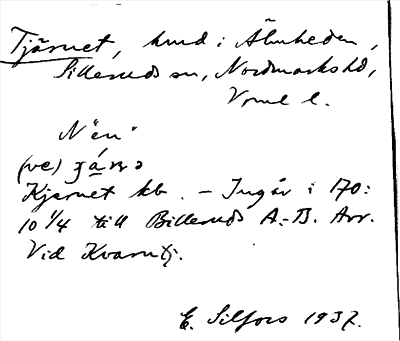 Tjärnet, hmd i Älmheden,
Sillerud sn, Nordmarks hd,
Vrml l.
N "en"
(ve)
Kjernet kb. – Ingår i 170:
10 1/4 till Billeruds A.-B. Arr.
Vid Kvarntj.
E. Silfors 1937.